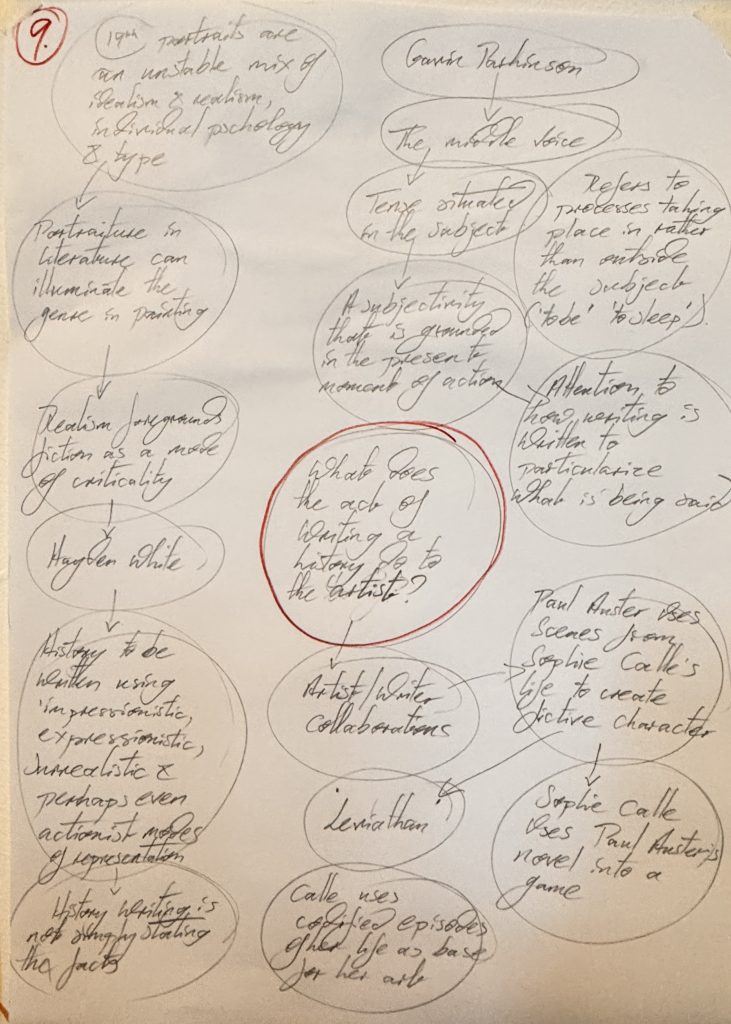 9.
19th portraits are
an unstable mix of
idealism & realism,
individual pschology
& type
Portraiture in
literature can
illuminate the
genre in painting
Realism foregrounds
fiction as a mode
of criticality
Hayden White
History to be
written using
'impressionistic,
expressionistic,
surrealistic &
perhaps even
actionist modes
of representation
History writing is
not simply stating
the facts
Gavin Parkinson
The middle voice
Tense situated
in the subject
Refers to
processes taking
place in rather
than outside
the subject
('to be' 'to sleep').
A subjectivity
that is grounded
in the present
moment of action
Attention to
how writing is
written to
particularize
what is being said
What does
the act of
writing a
history do to
the artist?
Artist/Writer
collaborations
Paul Auster uses
scenes from
Sophie Calle's
life to create
fictive character
'Leviathan'
Sophie Calle
uses Paul Auster's
novel into a
game
Calle uses
codified episodes
of her life as base
for her art